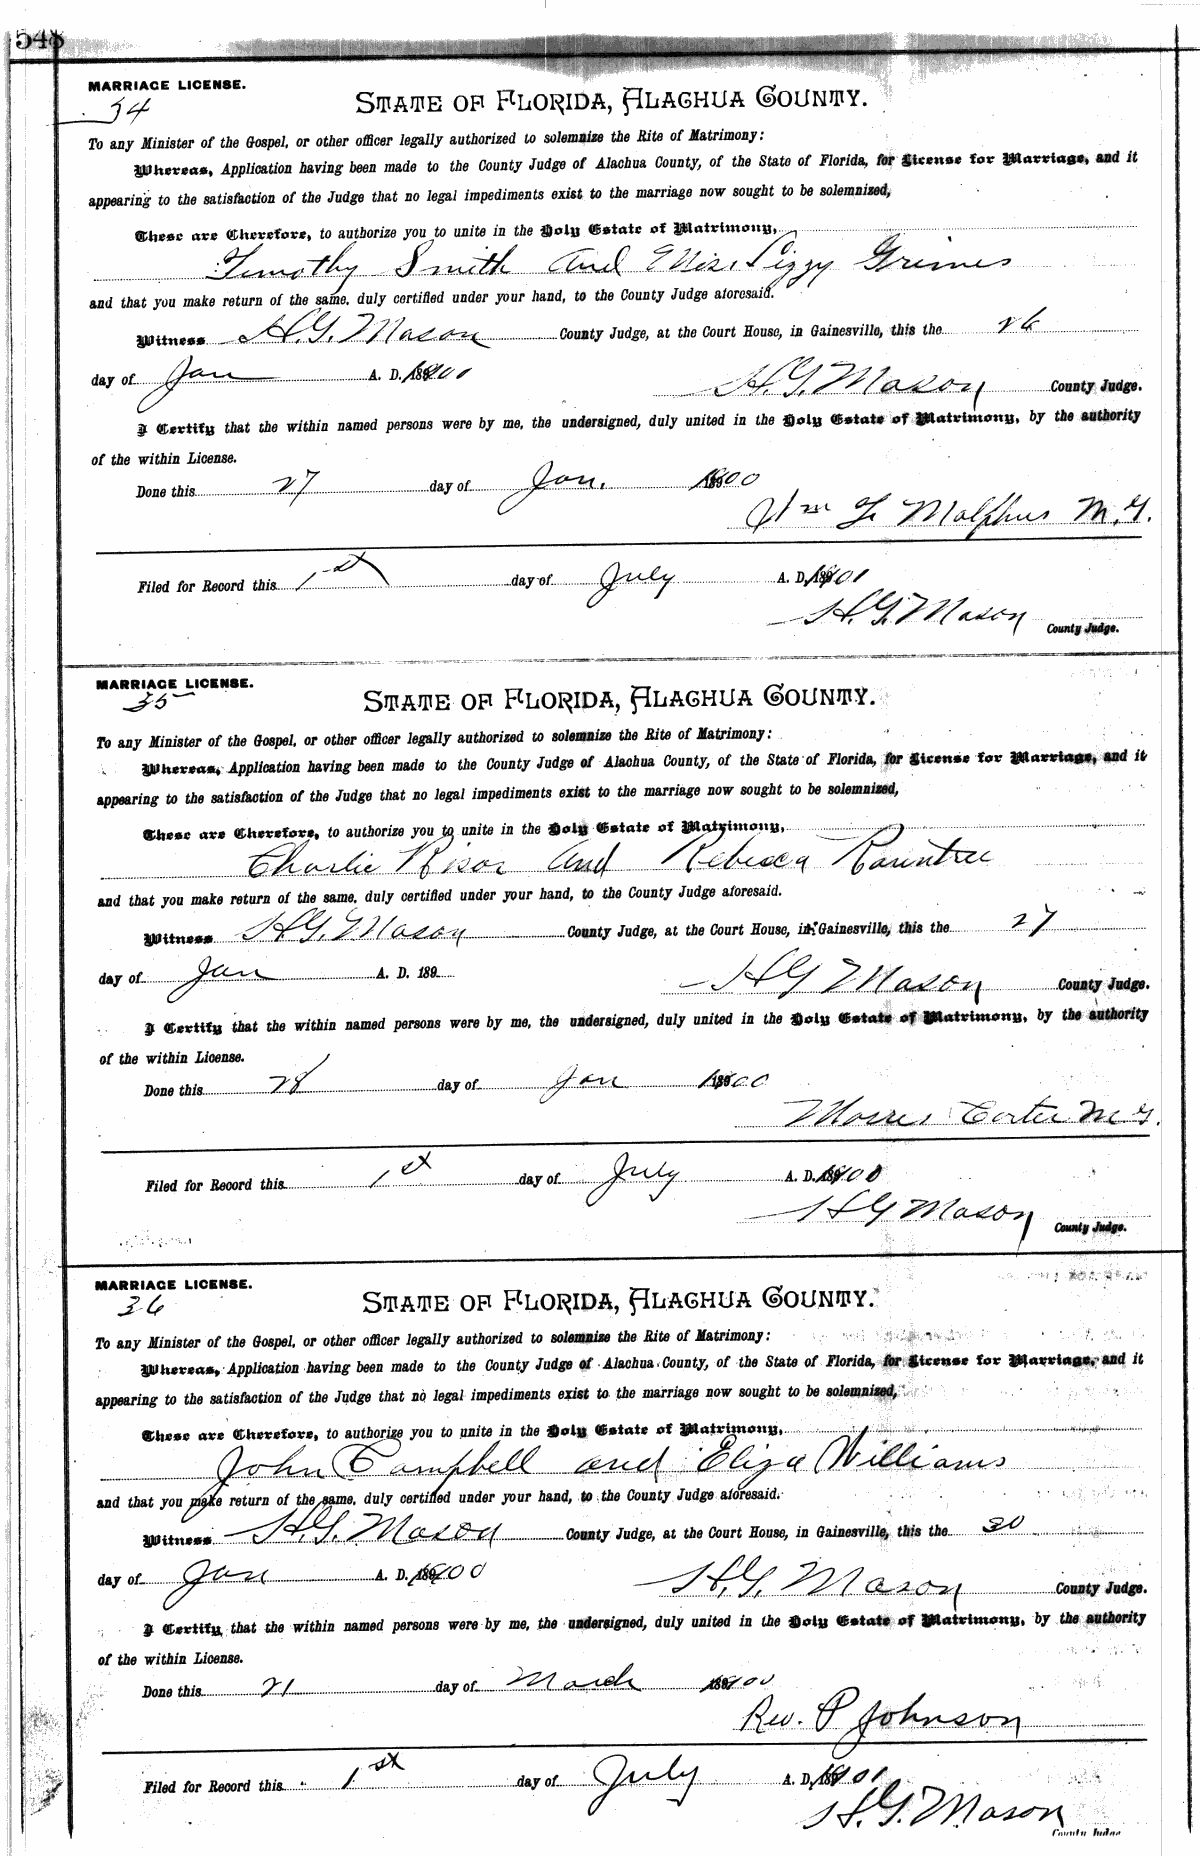 548
MARRIAGE LICENSE.
34
STATE OF FLORIDA, ALACHUA COUNTY.
To any Minister of the Gospel, or other officer legally authorized to solemnize the Rite of Matrimony:
Whereas, Application having been made to the County Judge of Alachua County, of the State of Florida, for License for Marriage, and it
appearing to the satisfaction of the Judge that no legal impediments exist to the marriage now sought to be solemnized,
These are Therefore, to authorize you to unite in the Holy Estate of Matrimony,
Timothy Smith and Miss Lizzy Grimes
and that you make return of the same, duly certified under your hand, to the County Judge aforesaid.
Witness H.G. Mason County Judge, at the Court House, in Gainesville, this the 26
day of Jan A. D. 1900
H.G. Mason County Judge.
I Certify that the within named persons were by me, the undersigned, duly united in the Holy Estate of Matrimony, by the authority
of the within License.
Done this 27 day of Jan. 1900
Wm F Malphus M.G.
Filed for Record this 1st day of July A. D. 1901
H.G. Mason
County Judge.
MARRIAGE LICENSE.
35
STATE OF FLORIDA, ALACHUA COUNTY.
To any Minister of the Gospel, or other officer legally authorized to solemnize the Rite of Matrimony:
Whereas, Application having been made to the County Judge of Alachua County, of the State of Florida, for License for Marriage, and it
appearing to the satisfaction of the Judge that no legal impediments exist to the marriage now sought to be solemnized,
These are Therefore, to authorize you to unite in the Holy Estate of Matrimony,
Charlie Risor and Rebecca Rountree
and that you make return of the same, duly certified under your hand, to the County Judge aforesaid.
Witness H.G. Mason County Judge, at the Court House, in Gainesville, this the 27
day of Jan A. D. 189
H G Mason County Judge.
I Certify that the within named persons were by me, the undersigned, duly united in the Holy Estate of Matrimony, by the authority
of the within License.
Done this 28 day of Jan 1900
Morris Carter M G.
Filed for Record this 1st day of July A. D. 1901
H G Mason
County Judge.
MARRIAGE LICENSE.
36
STATE OF FLORIDA, ALACHUA COUNTY.
To any Minister of the Gospel, or other officer legally authorized to solemnize the Rite of Matrimony:
Whereas, Application having been made to the County Judge of Alachua County, of the State of Florida, for License for Marriage, and it
appearing to the satisfaction of the Judge that no legal impediments exist to the marriage now sought to be solemnized,
These are Therefore, to authorize you to unite in the Holy Estate of Matrimony,
John Campbell and Eliza Williams
and that you make return of the same, duly certified under your hand, to the County Judge aforesaid.
Witness H.G. Mason County Judge, at the Court House, in Gainesville, this the 30
day of Jan A. D. 1900
H.G. Mason County Judge.
I Certify that the within named persons were by me, the undersigned, duly united in the Holy Estate of Matrimony, by the authority
of the within License.
Done this 21 day of March 1900
Rev. P Johnson
Filed for Record this 1st day of July A. D. 1901
H.G. Mason
County Judge